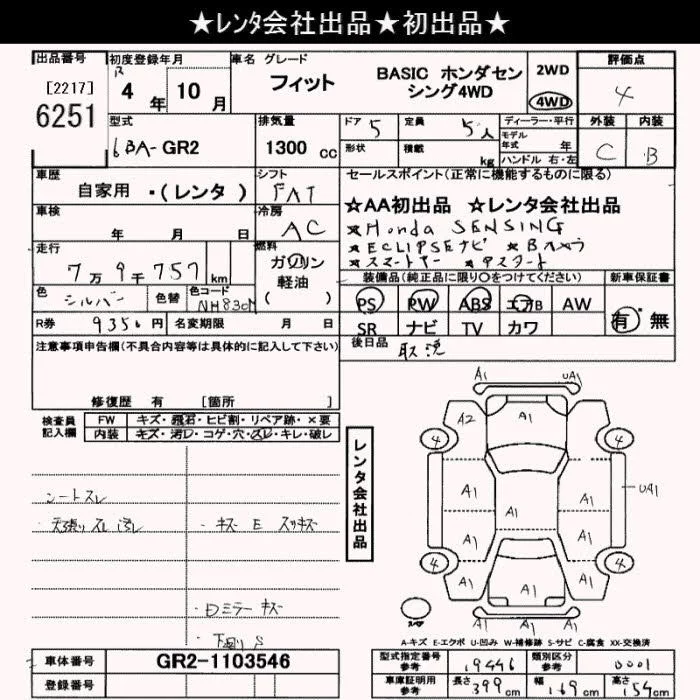 ★レンタ会社出品★初出品★
出品番号 初度登録年月 車名 グレード 評価点
[2217] R 4 年 10 月 フィット BASIC ホンダセンシング4WD 2WD 4WD 4
6251
型式 6BA-GR2 排気量 1300 cc ドア 5 定員 5人 ディーラー・平行 外装 C 内装 B
形状 積載 kg モデル年式 年 ハンドル 右・左
車歴 自家用 ・(レンタ) シフト FAT セールスポイント(正常に機能するものに限る)
車検 年 月 日 冷房 AC ☆AA初出品 ☆レンタ会社出品
★Honda SENSING
★ECLIPSEナビ ★Bカメラ
★スマートキー ★アスタート
走行 7万9千757 km 燃料 ガソリン 軽油 ( )
色 シルバー 色替 色コード NH830M
装備品(純正品に限り○をつけてください) 新車保証書
PS PW ABS エアB AW 有・無
SR ナビ TV カワ
R券 9350円 名変期限 月 日 後日品 取説
注意事項申告欄(不具合内容等は具体的に記入して下さい)
修復歴 有 [箇所 ]
検査員記入欄 FW キズ・飛石・ヒビ割・リペア跡・×要
内装 キズ・汚レ・コゲ・穴・スレ・キレ・破レ
レンタ会社出品
シートスレ
・天張りスレ 汚レ ・キズ E スリキズ
・Dミラーキズ
・下廻り S
A1 UA1
A2 A1
4 4
A1 A1 UA1
A1 A1 A1
4 4
A1 A1 A1
A1 A1 A1
A-キズ E-エクボ U-凹み W-補修跡 S-サビ C-腐食 XX-交換済
車体番号 GR2-1103546 型式指定番号 参考 19446 類別区分 参考 0001
登録番号 車庫証明用 参考 長さ 399 cm 幅 169 cm 高さ 54 cm